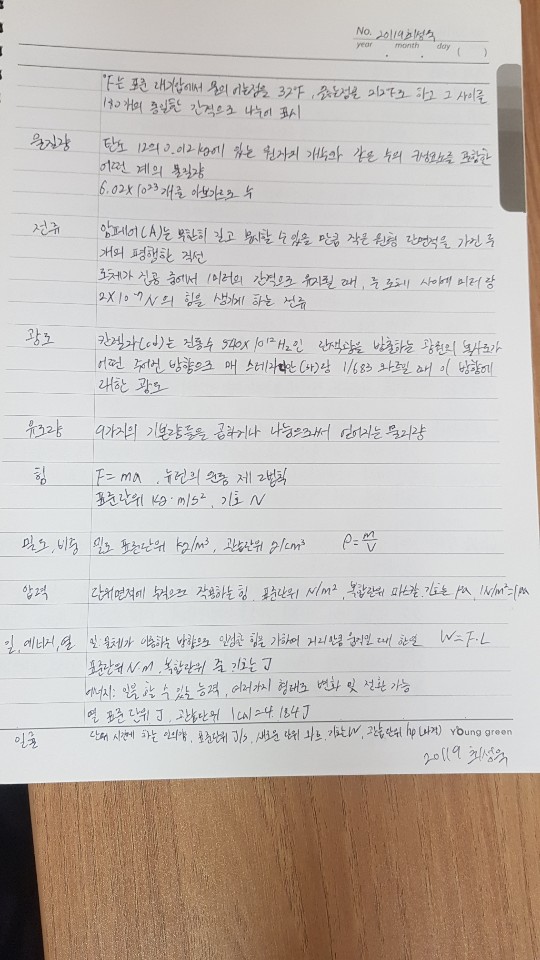 No. 20119 최성욱
year month day ( )
°F는 표준 대기압에서 물의 어는점을 32°F, 끓는점을 212°F로 하고 그 사이를
180개의 동일한 간격으로 나누어 표시
물질량 탄소 12의 0.012kg에 있는 원자의 개수와 같은 수의 구성요소를 포함한
어떤 계의 물질량
6.02×10²³개를 아보가드로 수
전류 암페어(A)는 무한히 길고 무시할 수 있을 만큼 작은 원형 단면적을 가진 두
개의 평행한 직선
도체가 진공 중에서 1미터의 간격으로 유지될 때, 두 도체 사이에 미터 당
2×10⁻⁷N의 힘을 생기게 하는 전류
광도 칸델라(cd)는 진동수 540×10¹²Hz인 단색광을 방출하는 광원의 복사도가
어떤 주어진 방향으로 매 스테라디안(sr)당 1/683 와트일 때 이 방향에
대한 광도
유도량 9가지의 기본량들을 곱하거나 나눔으로써 얻어지는 물리량
힘 F=ma, 뉴턴의 운동 제 2법칙
표준단위 kg·m/s², 기호 N
밀도, 비중 밀도 표준단위 kg/m³, 관습단위 g/cm³ ρ=m/V
압력 단위면적에 수직으로 작용하는 힘, 표준단위 N/m², 복합단위 파스칼, 기호는 Pa, 1N/m²=1Pa
일, 에너지, 열 일: 물체가 이동하는 방향으로 일정한 힘을 가하여 거리만큼 움직일 때 한일 W=F·L
표준단위 N·m, 복합단위 줄, 기호는 J
에너지: 일을 할 수 있는 능력, 여러가지 형태로 변화 및 전환 가능
열 표준 단위 J, 관습단위 1cal=4.184J
일률 단위 시간에 하는 일의양, 표준단위 J/s, 새로운 단위 와트, 기호는W, 관습단위 hp(마력) Young green
20119 최성욱